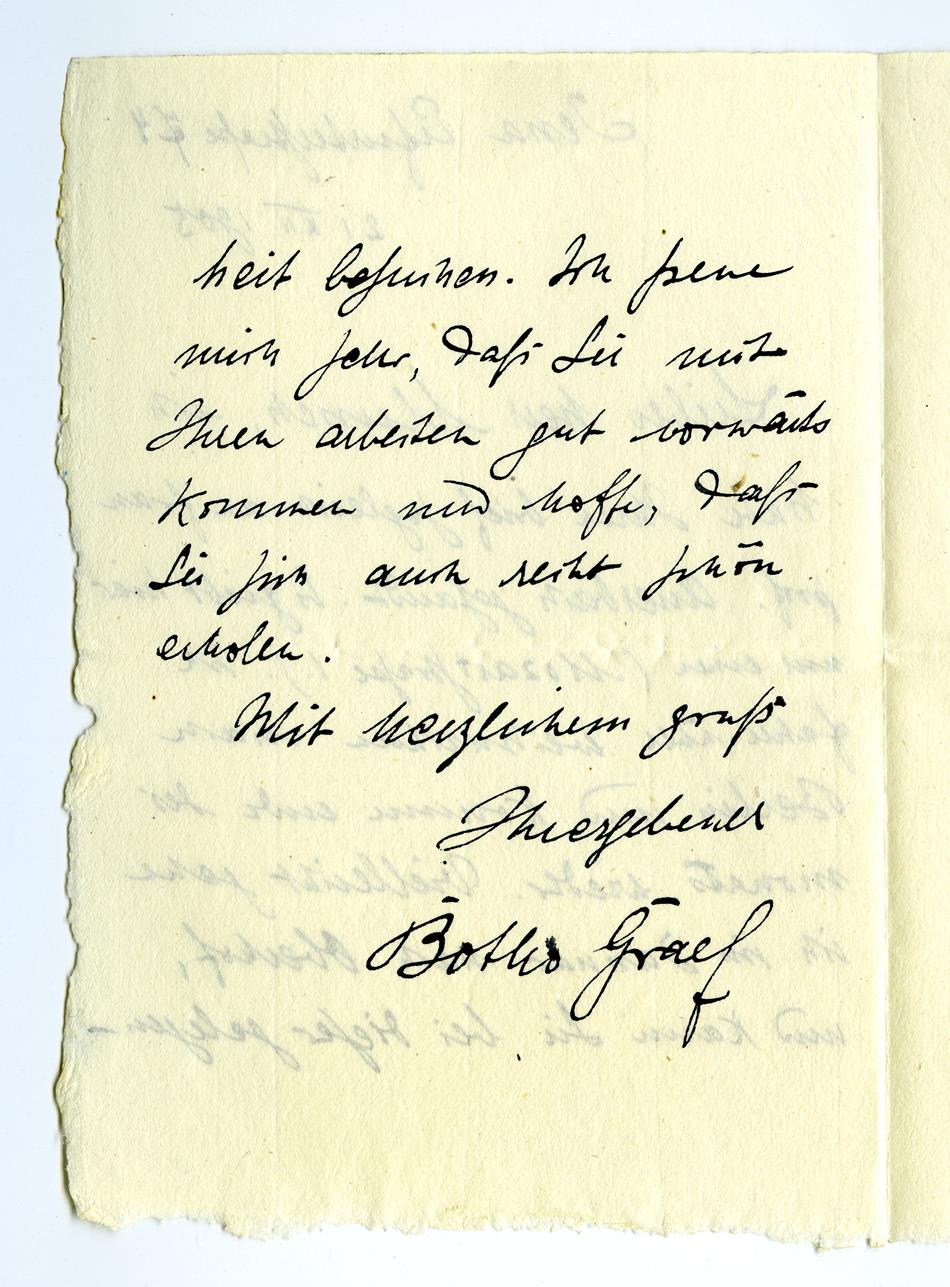 heit besuchen. Ich freue
mich sehr, daß Sie mit
Ihren arbeiten gut vorwärts
kommen und hoffe, daß
Sie sich auch recht schön
erholen.
Mit herzlichem gruß
Ihr ergebener
Botho Graef